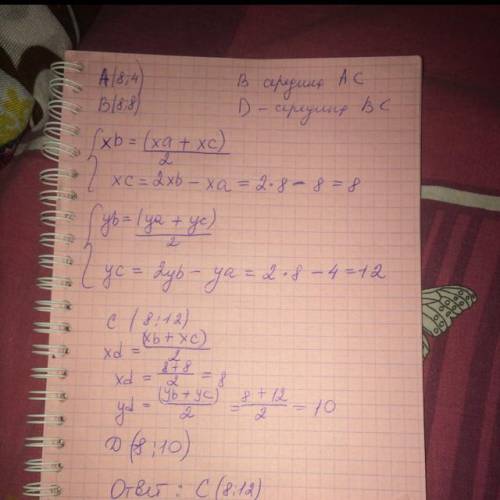 A(8;4) B середина AC
B(8;8) D - середина BC
xb = (xa + xc)/2
xc = 2xb - xa = 2·8 - 8 = 8
yb = (ya + yc)/2
yc = 2yb - ya = 2·8 - 4 = 12
C (8;12)
xd = (xb + xc)/2
xd = 8+8/2 = 8
yd = (yb + yc)/2 = 8+12/2 = 10
D (8;10)
Ответ: C(8;12)